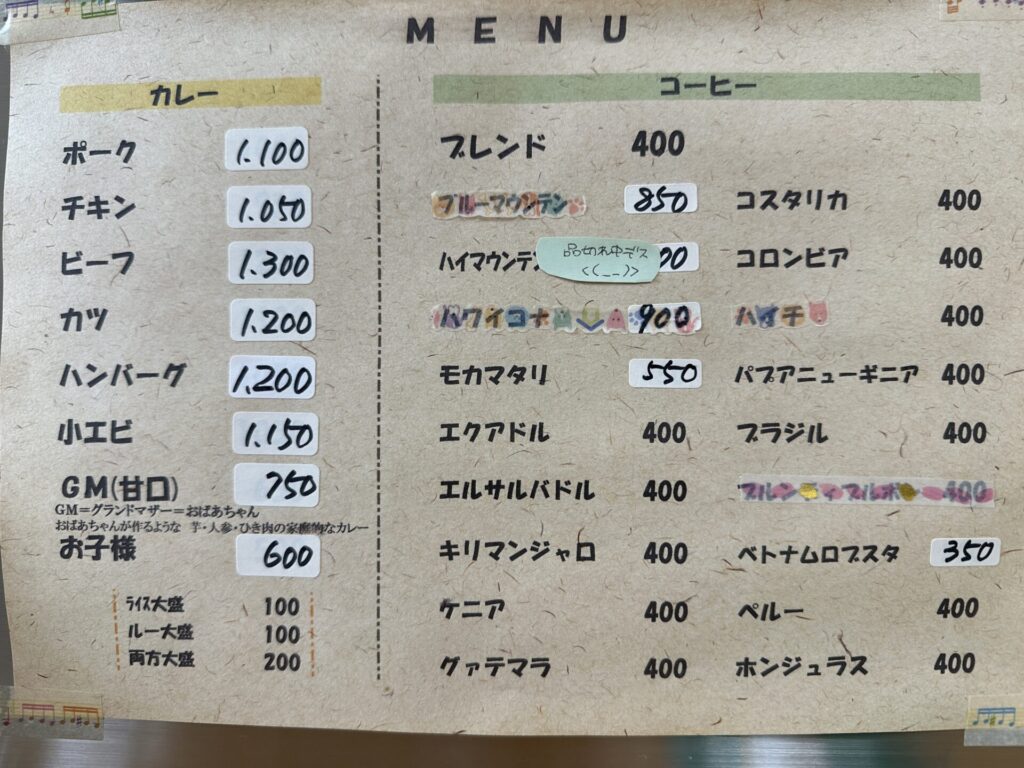 MENU
カレー
ポーク 1.100
チキン 1.050
ビーフ 1.300
カツ 1.200
ハンバーグ 1.200
小エビ 1.150
GM(甘口) 750
GM=グランドマザー=おばあちゃん
おばあちゃんが作るような 芋・人参・ひき肉の家庭的なカレー
お子様 600
ライス大盛 100
ルー大盛 100
両方大盛 200
コーヒー
ブレンド 400
ブルーマウンテン 850
ハイマウンテン
品切れ中デス
<(__)>
ハワイコナ 900
モカマタリ 550
エクアドル 400
エルサルバドル 400
キリマンジャロ 400
ケニア 400
グァテマラ 400
コスタリカ 400
コロンビア 400
ハイチ 400
パプアニューギニア 400
ブラジル 400
ブルンディブルボン 400
ベトナムロブスタ 350
ペルー 400
ホンジュラス 400